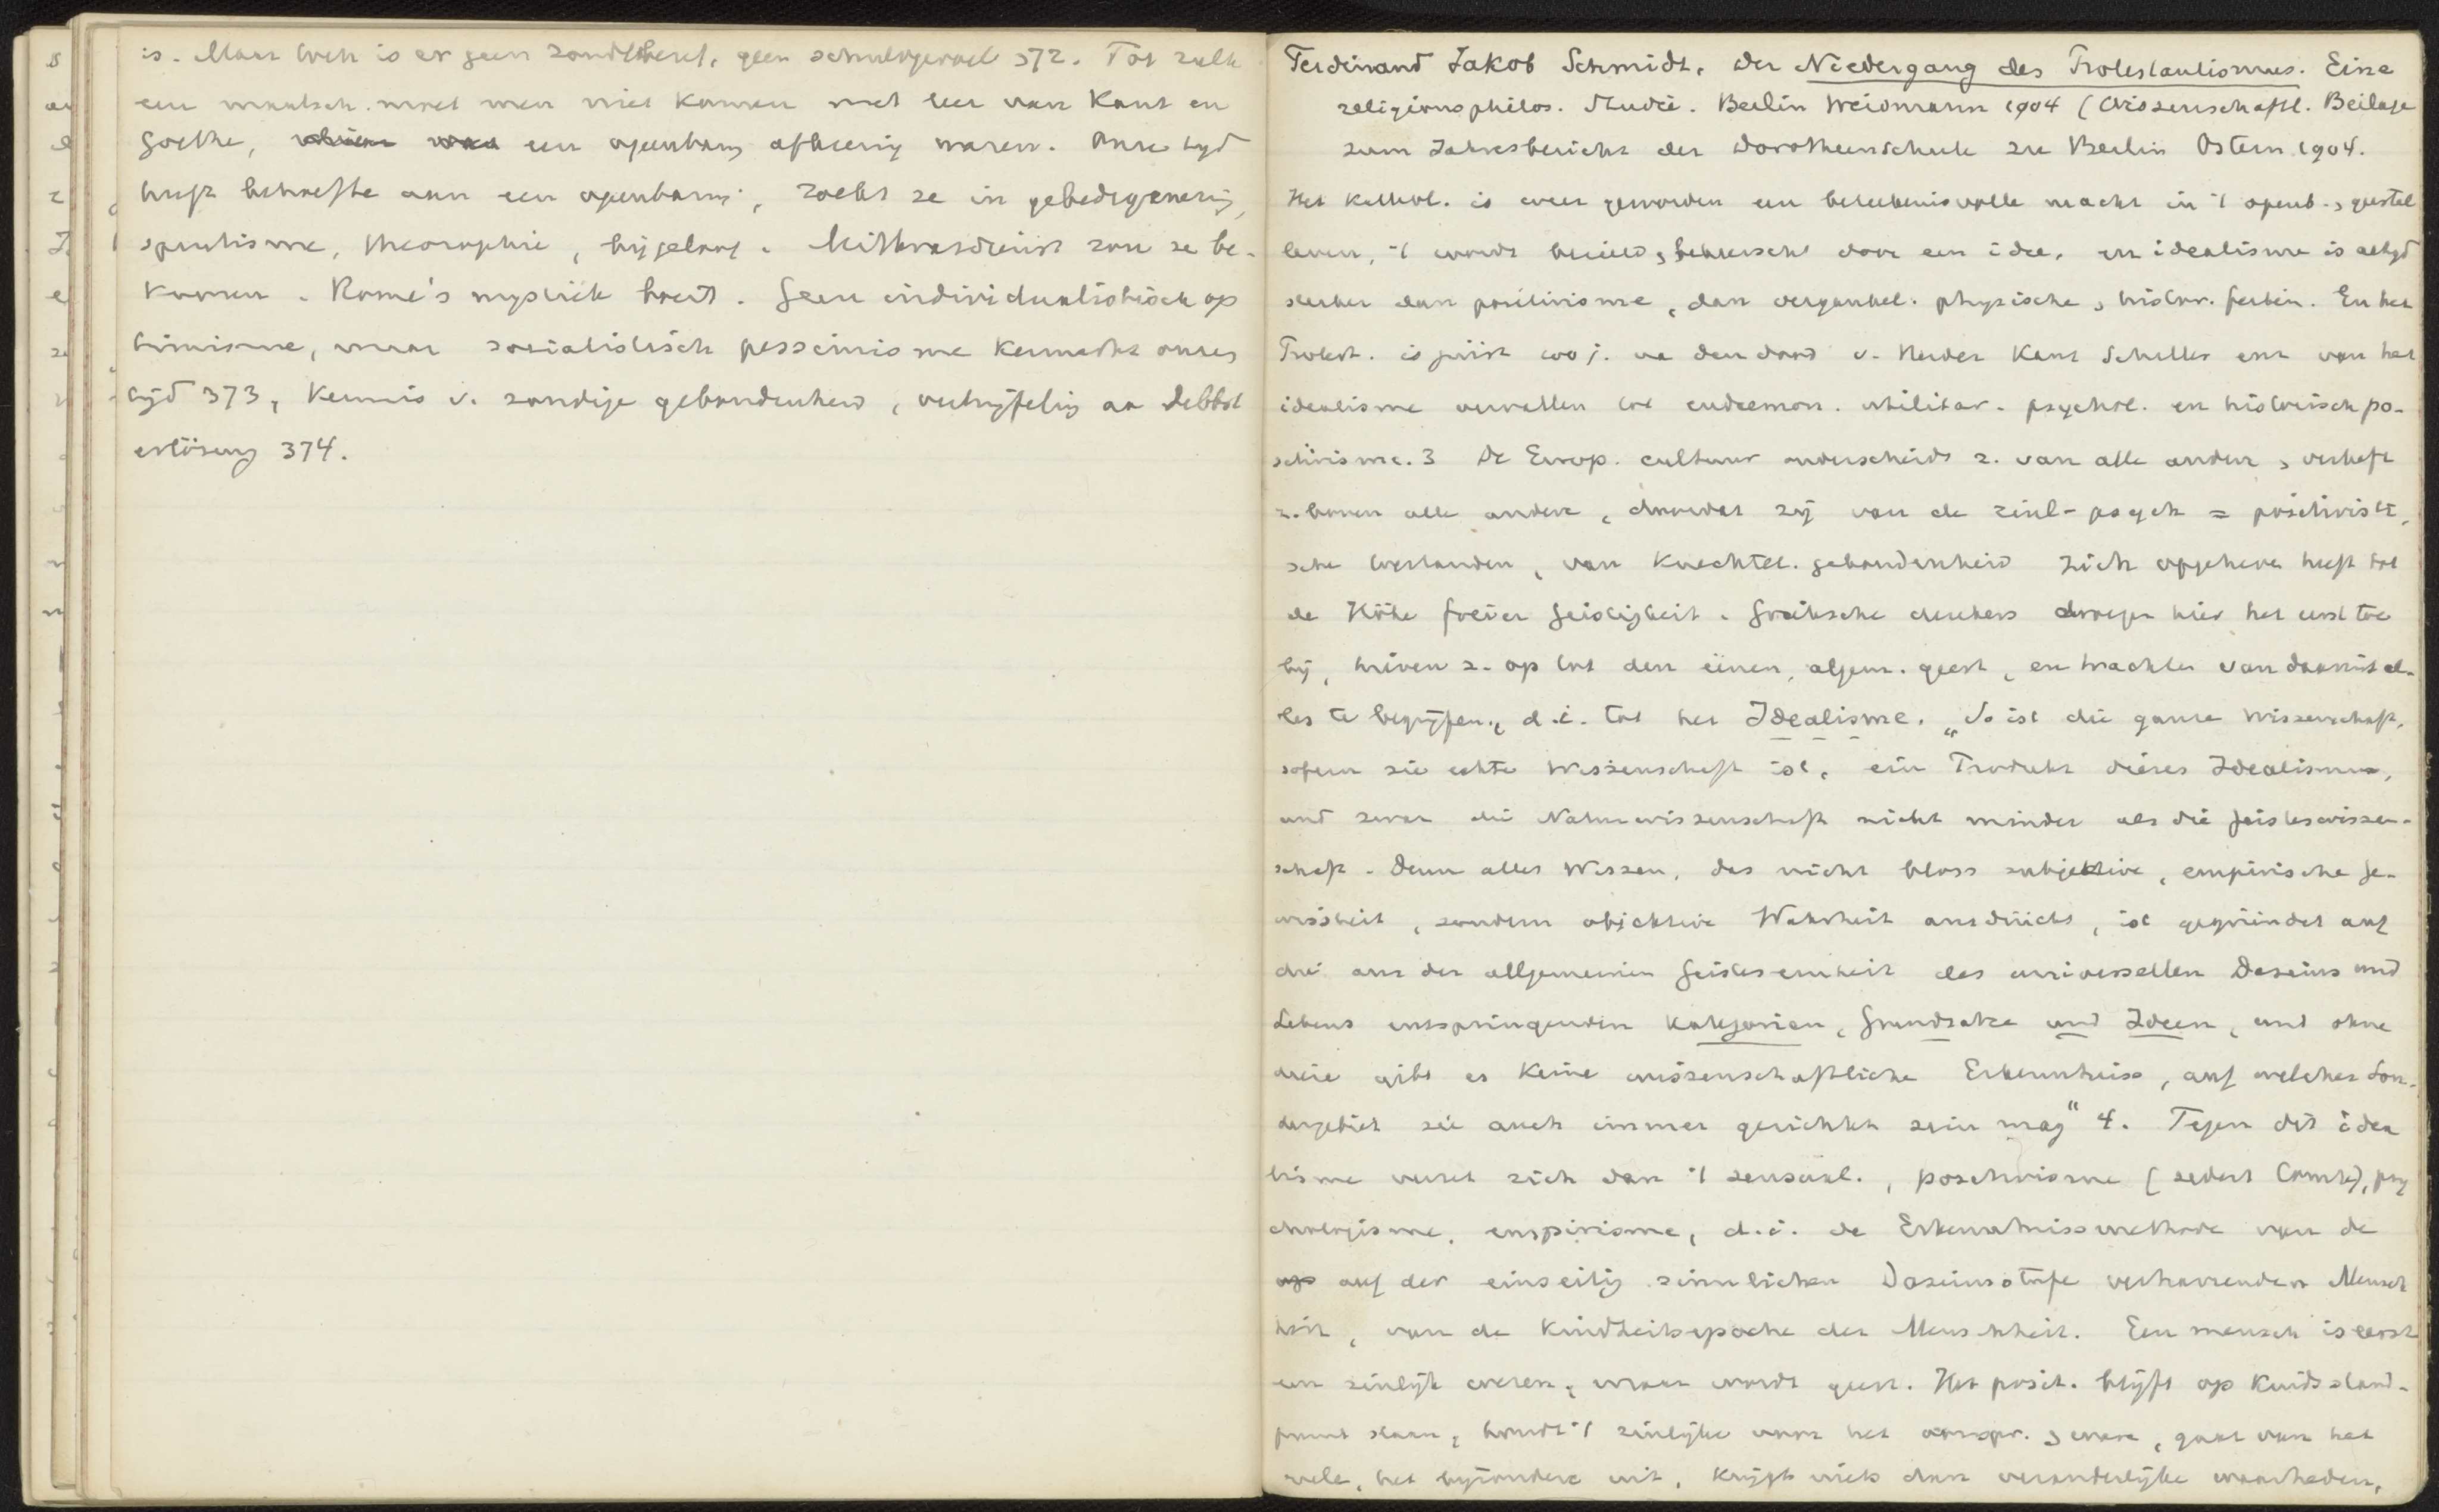 is. Maar toch is er geen zondebesef, geen schuldgevoel 372. Tot zulk
een maatsch. moet men niet komen met leer van Kant en
Goethe, een openbaring afkeerig waren. Onze tijd
heeft behoefte aan een openbaring, zoekt ze in gebedsgenezing,
spiritisme, theosophie, bijgeloof. Mithrasdienst zou ze be-
komen. Rome's mystiek boeit. Geen individualistisch op
timisme, maar socialistisch pessimisme kenmerkt onzen
tijd 373, kennis v. zondige gebondenheid, vertwijfeling aan Selbst
erlösung 374.
Ferdinand Jakob Schmidt, Der Niedergang des Protestantismus. Eine
religionsphilos. Studie. Berlin Weidmann 1904 (Wissenschaftl. Beilage
zum Jahresbericht der Dorotheenschule zu Berlin Ostern 1904.
Het Kathol. is weer geworden een beteekenisvolle macht in 't openb. geestel
leven, 't wordt bezield, beheerscht door een idee, en idealisme is altijd
sterker dan positivisme, dan vergankel. physische, histor. feiten. En het
Protest. is juist na den dood v. Herder Kant Schiller enz van het
idealisme vervallen tot eudaemon. utilitar. psychol. en historisch po-
sitivisme. 3 De Europ. cultuur onderscheidt z. van alle andere, verheft
z. boven alle andere, doordat zij van de zinl-psych = positivisti
sche toestanden, van knechtel. gebondenheid zich opgeheven heeft tot
de Höhe freier Geistigkeit. Grieksche denkers droegen hier het eerst toe
bij, hieven z. op tot den éénen, algem. geest, en trachtten van daaruit al-
les te begrijpen, d.i. tot het Idealisme. "So ist die ganze Wissenschaft,
sofern sie echte Wissenschaft ist, ein Produkt dieses Idealismus,
und zwar die Naturwissenschaft nicht minder als die Geisteswissen-
schaft. Denn alles Wissen, das nicht bloss subjektive, empirische Ge-
wissheit, sondern objektive Wahrheit ausdrückt, ist gegründet auf
die aus der allgemeinen Geisteseinheit des universellen Daseins und
Lebens entspringenden Kategorien, Grundsätze und Ideen, und ohne
diese gibt es keine wissenschaftliche Erkenntniss, auf welches Son-
dergebiet sie auch immer gerichtet sein mag" 4. Tegen dit idea
lisme verzet zich dan 't sensual., positivisme (sedert Comte), psy
chologisme, empirisme, d.i. de Erkenntnissmethode van de
auf der einseitig sinnlichen Daseinsstufe verharrenden Mensch
heit, van de Kindheitsepoche der Menschheit. Een mensch is eerst
een zinlijk wezen, maar wordt geest. Het posit. blijft op kindsstand-
punt staan, houdt 't zinlijke voor het oorspr. ware, gaat van het
vele, het bijzondere uit, krijgt niets dan veranderlijke waarheden,